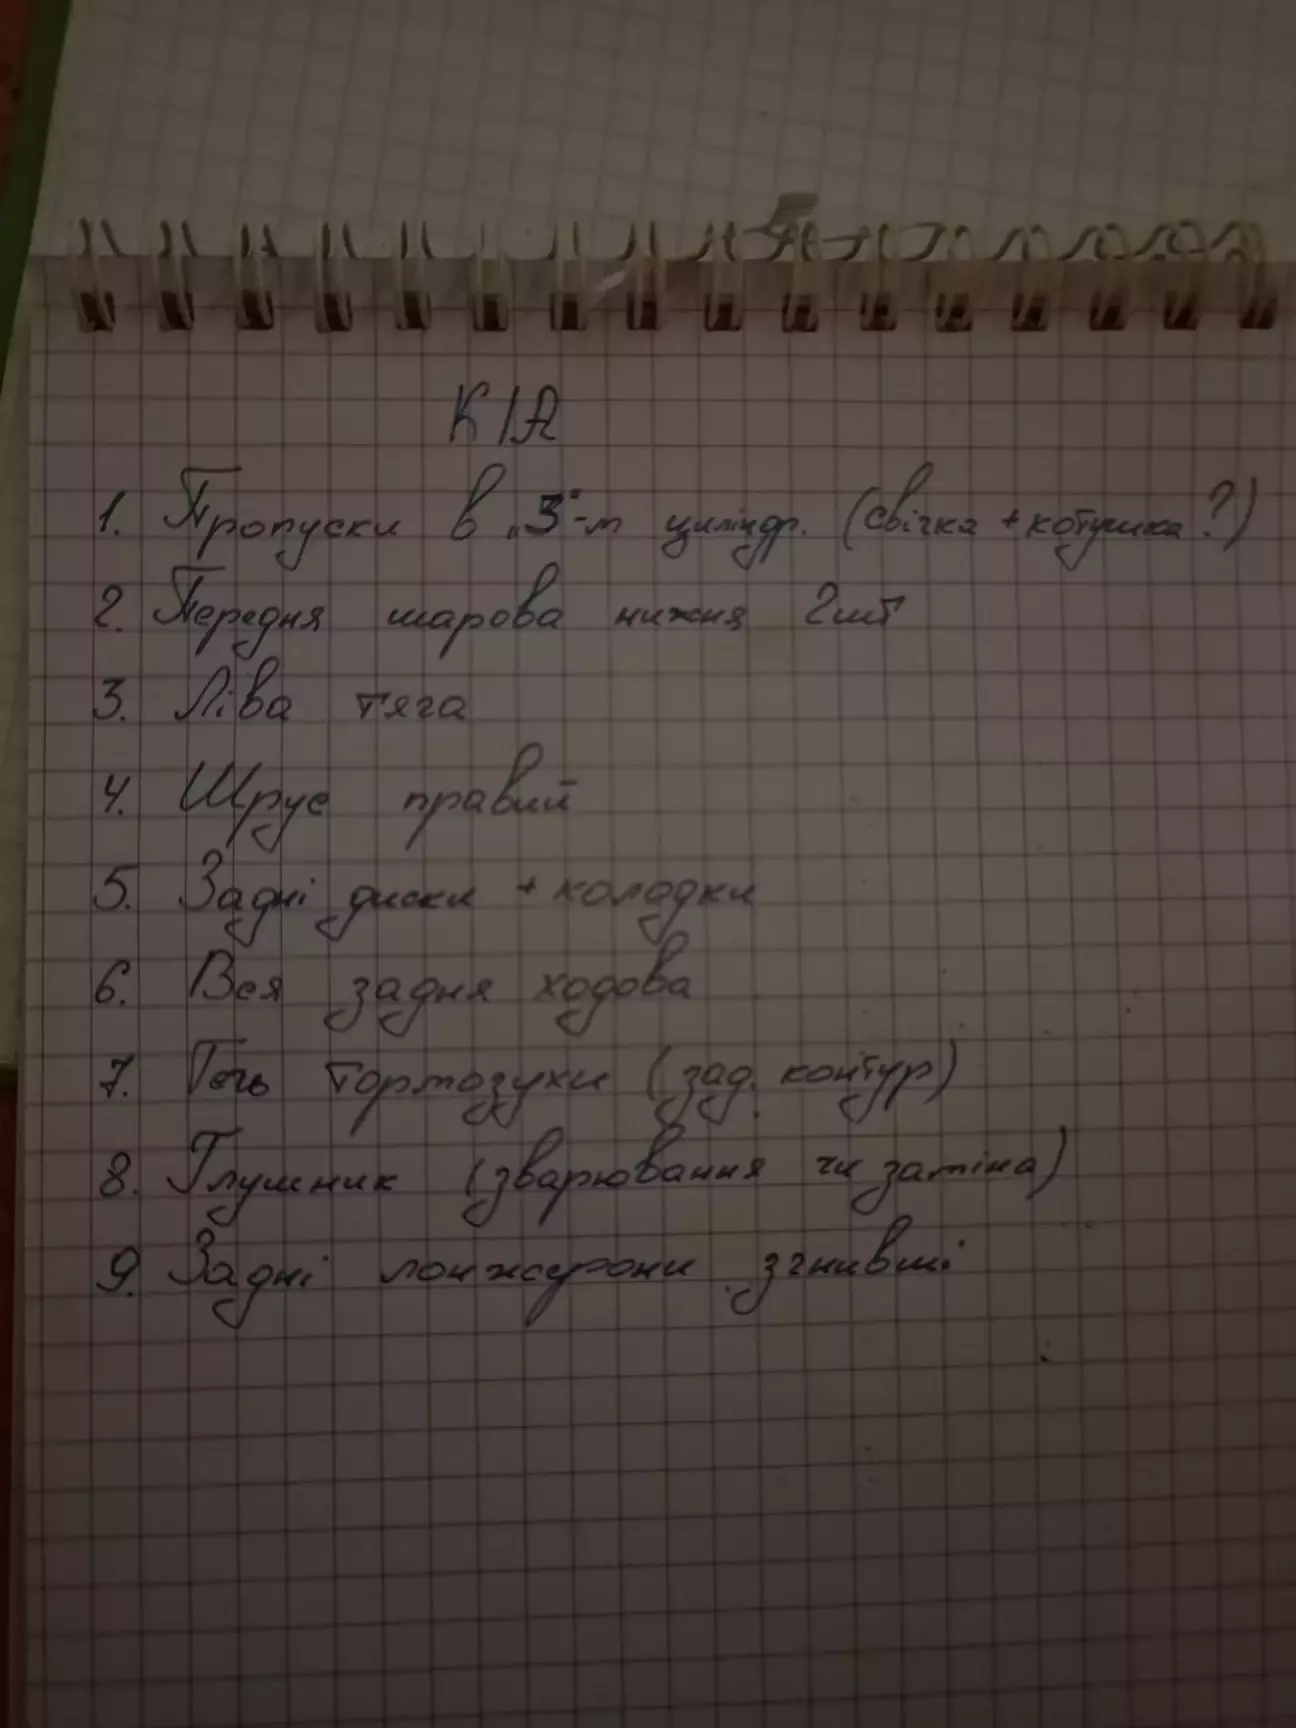 KIA
1. Пропуски в „3"-м циліндр. (свічка + котушка ?)
2. Передня шарова нижня 2шт
3. Ліва тяга
4. Шрус правий
5. Задні диски + колодки
6. Вся задня ходова
7. Течь тормозухи (зад. контур)
8. Глушник (зварювання чи заміна)
9. Задні лонжерони згнивші